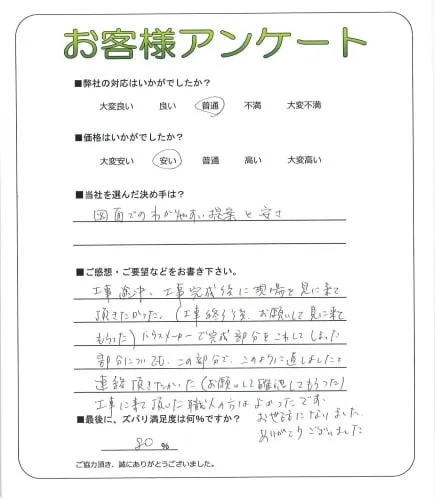 お客様アンケート
■弊社の対応はいかがでしたか？
大変良い 良い 普通 不満 大変不満
■価格はいかがでしたか？
大変安い 安い 普通 高い 大変高い
■当社を選んだ決め手は？
図面でのわかりやすい提案と安さ
■ご感想・ご要望などをお書き下さい。
工事途中、工事完成後に現場を見に来て
頂きたかった。(工事終了後、お願いして見に来て
もらった)ハウスメーカーで完成部分をこわしてしまった
部分についても、この部分で、このように直しましたと
連絡頂きたかった(お願いして確認してもらった)
工事に来て頂いた職人の方はよかったです。
お世話になりました
ありがとうございました
■最後に、ズバリ満足度は何％ですか？
80 %
ご協力頂き、誠にありがとうございました。